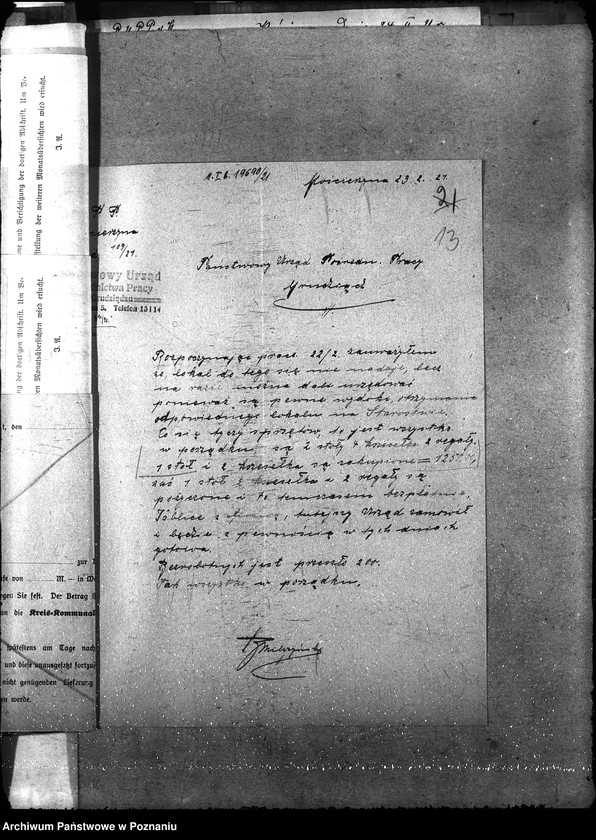 1.I.b. 19690/21
Kościerzyna 23.2.21.
21
13
119/21.
Urząd
nictwa Pracy
Telefon 13114
Państwowy Urząd Pośredn. Pracy
Grudziądz
Rozpoczynając pracę 22/2 zauważyłem
że, lokal do tego się nie nadaje, lecz
na razie można dalej urzędować
ponieważ są pewne widoki, otrzymania
odpowiedniego lokalu na Starostwie.
Co się tyczy sprzętów, to jest wszystko
w porządku, są 2 stoły 4 krzesełka 2 regały,
1 stół i 2 krzesełka są zakupione =
zaś 1 stół 2 krzesełka i 2 regały są
pożyczone i to tymczasem bezpłatnie,
Tablicę z, tutejszy Urząd zamówił
i będzie z pewnością w tych dniach
gotowa.
Bezrobotnych jest przeszło 200.
Tak wszystko w porządku.
me und Berichtigung der dortigen Abschrift. Um
stellung der weiteren Monatsübersichten wird ersucht.
J. A.
ng der dortigen Abschrift. Um
der weiteren Monatsübersichten wird ersucht.
J. A.
, den
zur
von M. – in
ogen Sie fest. Der Betrag
an die Kreis-Kommunal
spätestens am Tage nach
und diese unausgesetzt fortzu
nicht genügenden Lieferung
en werde.
Archiwum Państwowe w Poznaniu